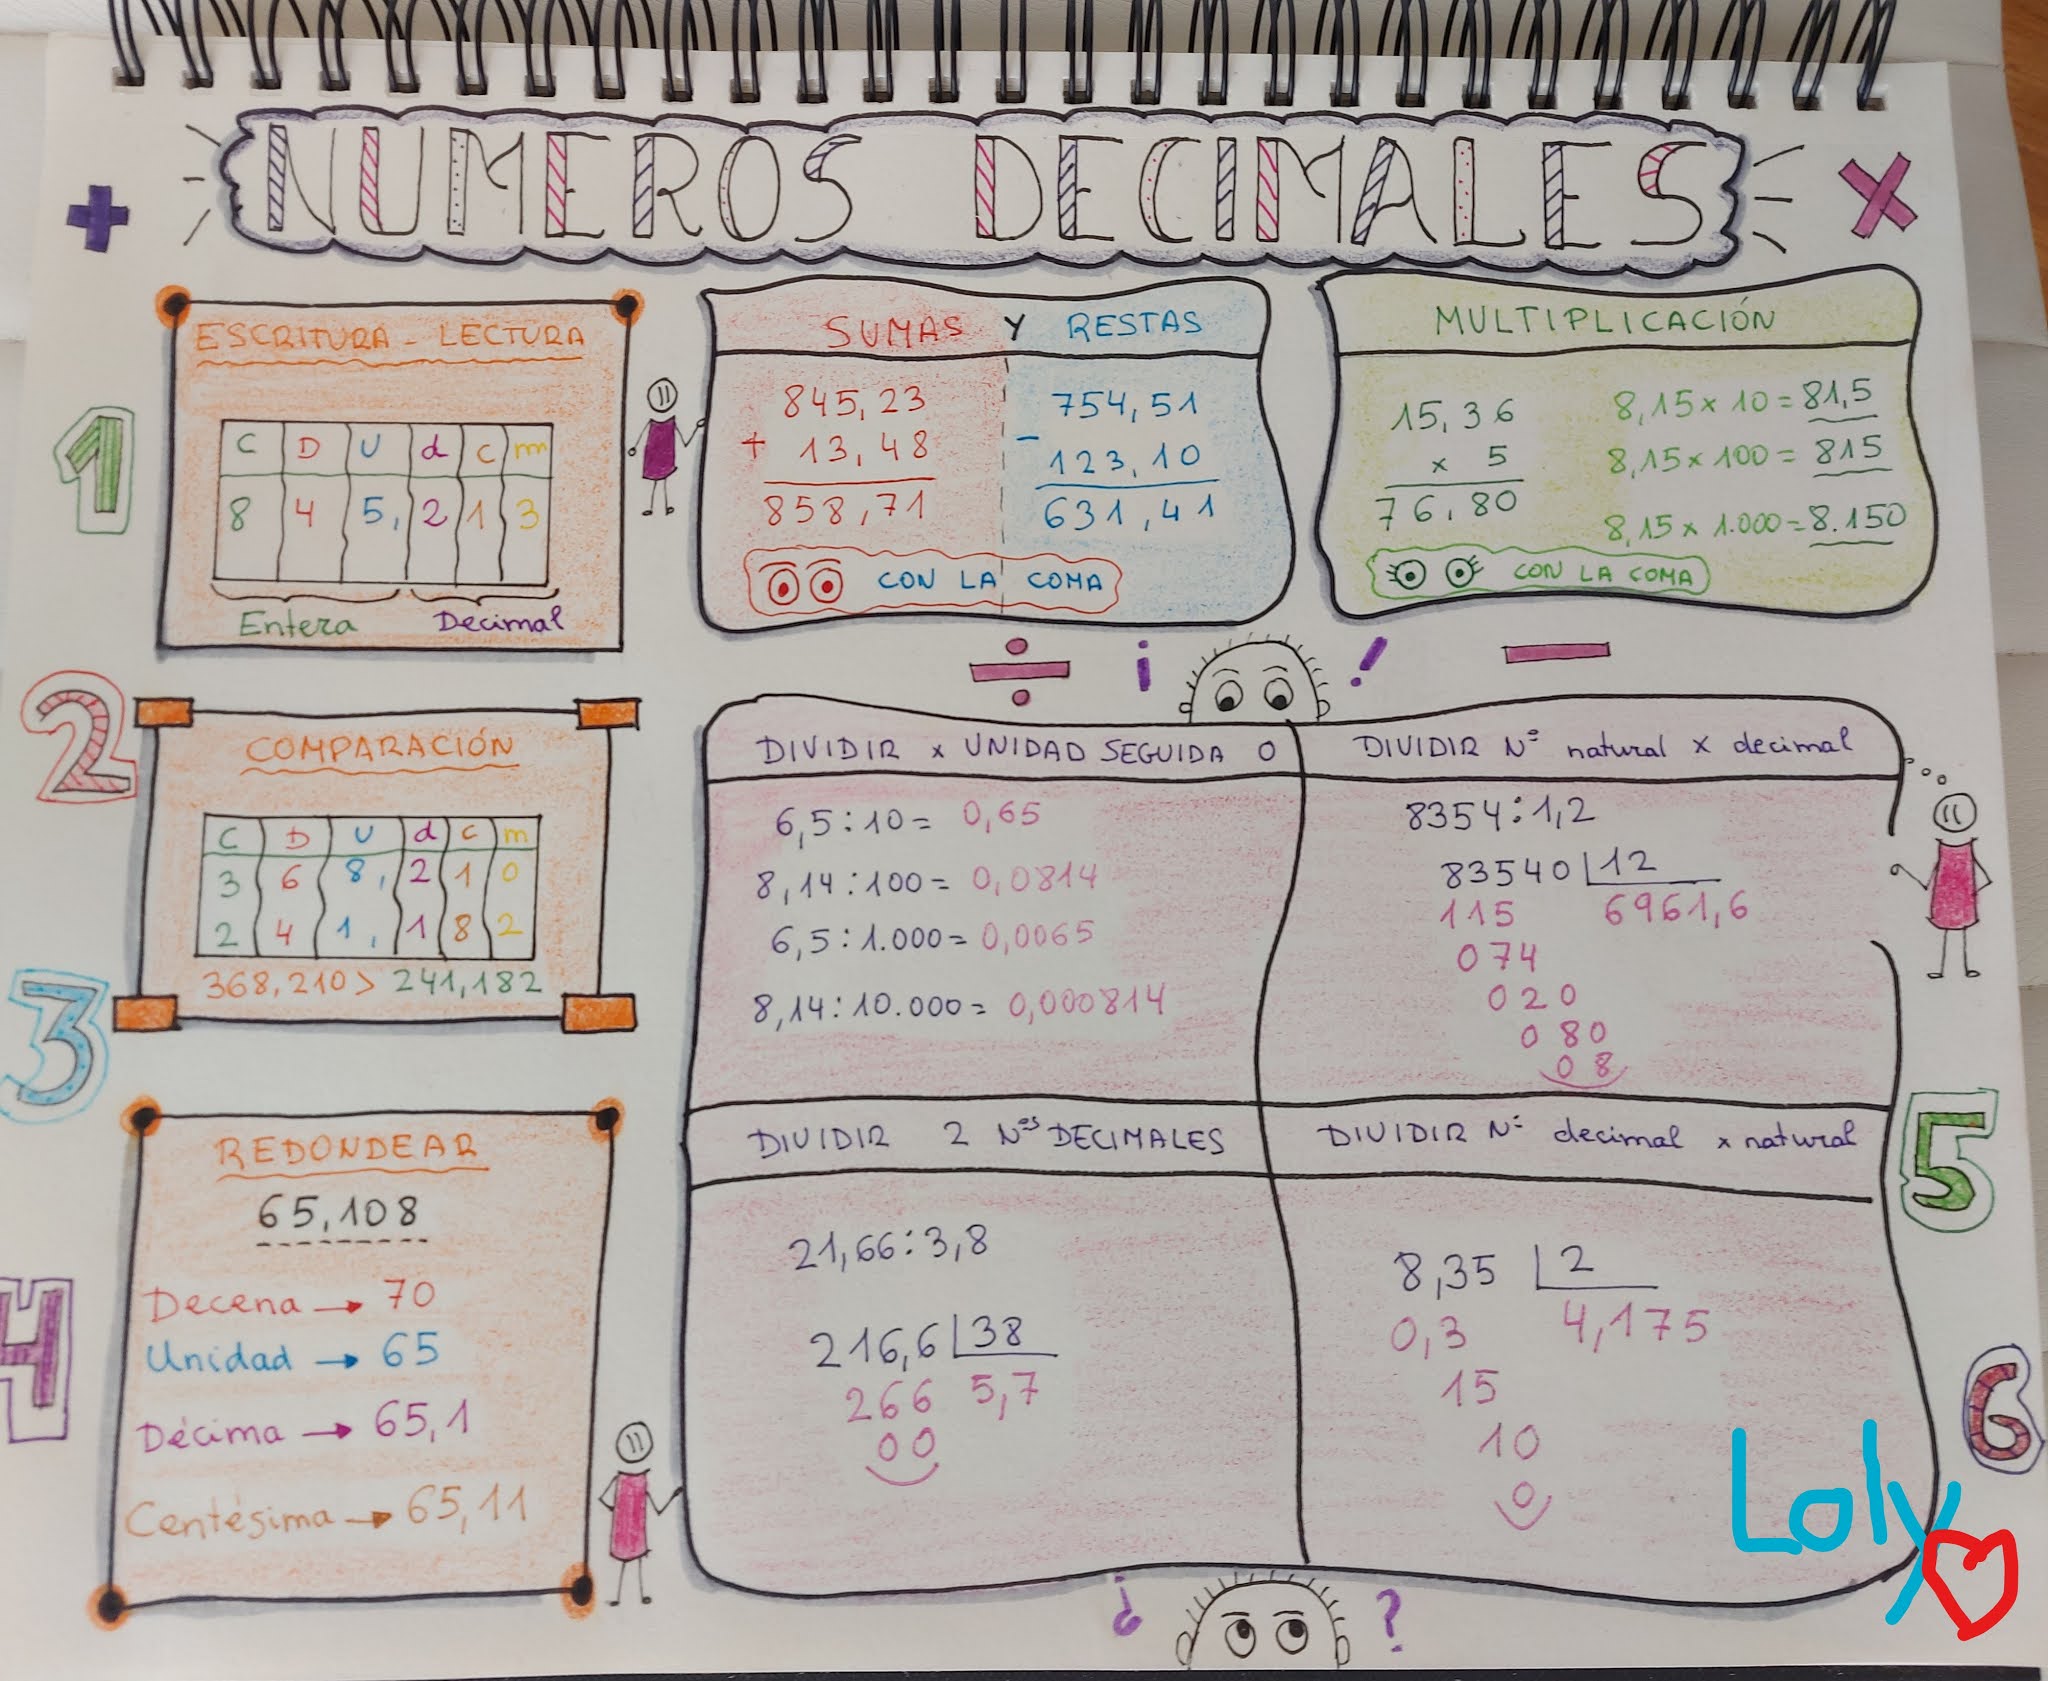 NUMEROS DECIMALES
+
×
1
ESCRITURA - LECTURA
C D U d c m
8 4 5, 2 1 3
Entera Decimal
SUMAS Y RESTAS
845,23
+ 13,48
858,71
754,51
- 123,10
631,41
CON LA COMA
MULTIPLICACIÓN
15,36
x 5
76,80
8,15 x 10 = 81,5
8,15 x 100 = 815
8,15 x 1.000 = 8.150
CON LA COMA
÷ ¡ ! −
2
COMPARACIÓN
C D U d c m
3 6 8, 2 1 0
2 4 1, 1 8 2
368,210 > 241,182
3
4
REDONDEAR
65,108
Decena → 70
Unidad → 65
Décima → 65,1
Centésima → 65,11
DIVIDIR x UNIDAD SEGUIDA 0
6,5 : 10 = 0,65
8,14 : 100 = 0,0814
6,5 : 1.000 = 0,0065
8,14 : 10.000 = 0,000814
DIVIDIR Nº natural x decimal
8354 : 1,2
83540 | 12
115 6961,6
074
020
080
08
DIVIDIR 2 Nºs DECIMALES
21,66 : 3,8
216,6 | 38
266 5,7
00
DIVIDIR Nº decimal x natural
8,35 | 2
0,3 4,175
15
10
0
5
6
¿ ?
Loly